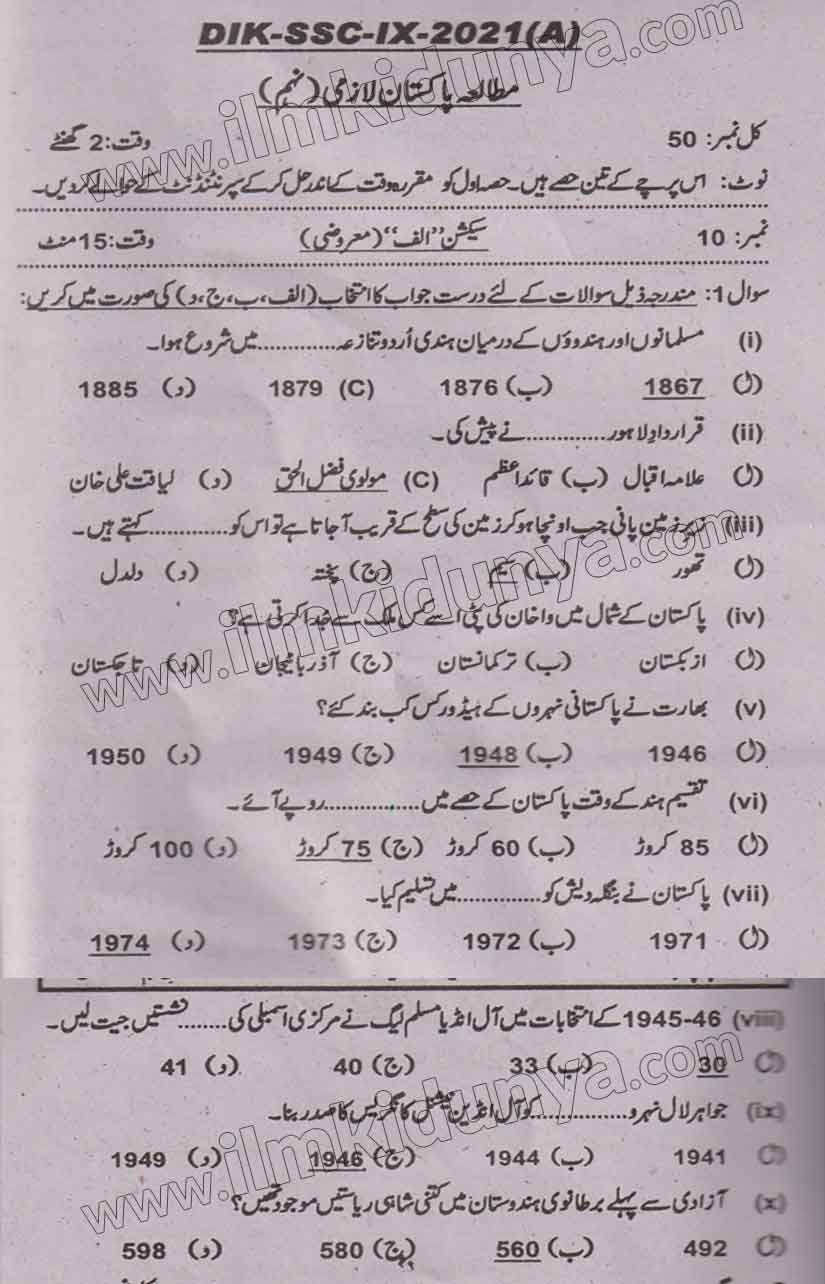 DIK-SSC-IX-2021(A)
مطالعہ پاکستان لازمی (نہم)
کل نمبر: 50 وقت: 2 گھنٹے
نوٹ: اس پرچے کے تین حصے ہیں۔ حصہ اول کو مقررہ وقت کے اندر حل کر کے سپرنٹنڈنٹ کے حوالے کر دیں۔
نمبر: 10 سیکشن "الف" (معروضی) وقت: 15 منٹ
سوال 1: مندرجہ ذیل سوالات کے لئے درست جواب کا انتخاب (الف، ب، ج، د) کی صورت میں کریں:
(i) مسلمانوں اور ہندوؤں کے درمیان ہندی اُردو تنازعہ ............ میں شروع ہوا۔
(ا) 1867 (ب) 1876 (C) 1879 (د) 1885
(ii) قراردادِ لاہور ............ نے پیش کی۔
(ا) علامہ اقبال (ب) قائداعظم (C) مولوی فضل الحق (د) لیاقت علی خان
(iii) زیر زمین پانی جب اونچا ہو کر زمین کی سطح کے قریب آ جاتا ہے تو اس کو ............ کہتے ہیں۔
(ا) تھور (ب) سیم (ج) پختہ (د) دلدل
(iv) پاکستان کے شمال میں واخان کی پٹی اسے کس ملک سے جُدا کرتی ہے؟
(ا) ازبکستان (ب) ترکمانستان (ج) آذربائیجان (د) تاجکستان
(v) بھارت نے پاکستانی نہروں کے ہیڈ ورکس کب بند کئے؟
(ا) 1946 (ب) 1948 (ج) 1949 (د) 1950
(vi) تقسیم ہند کے وقت پاکستان کے حصے میں .............. روپے آئے۔
(ا) 85 کروڑ (ب) 60 کروڑ (ج) 75 کروڑ (د) 100 کروڑ
(vii) پاکستان نے بنگلہ دیش کو ............ میں تسلیم کیا۔
(ا) 1971 (ب) 1972 (ج) 1973 (د) 1974
(viii) 1945-46 کے انتخابات میں آل انڈیا مسلم لیگ نے مرکزی اسمبلی کی ........ نشستیں جیت لیں۔
(ا) 30 (ب) 33 (ج) 40 (د) 41
(ix) جواہر لال نہرو .............. کو آل انڈین نیشنل کانگریس کا صدر بنا۔
(ا) 1941 (ب) 1944 (ج) 1946 (د) 1949
(x) آزادی سے پہلے برطانوی ہندوستان میں کتنی شاہی ریاستیں موجود تھیں؟
(ا) 492 (ب) 560 (ج) 580 (د) 598
www.ilmkidunya.com
www.ilmkidunya.com
www.ilmkidunya.com